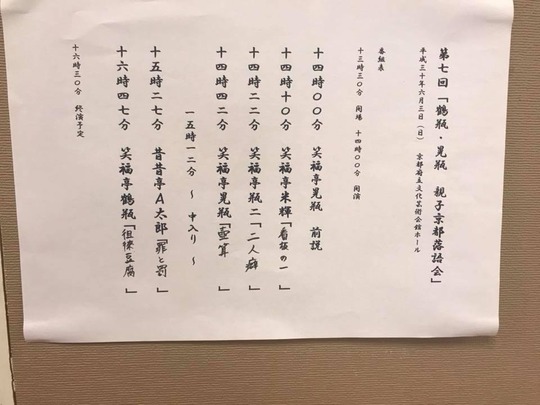 第七回「鶴瓶・晃瓶 親子京都落語会」
平成三十年六月三日(日) 京都府立文化芸術会館ホール
番組表
十三時三〇分 開場 十四時〇〇分 開演
十四時〇〇分 笑福亭晃瓶 前説
十四時十〇分 笑福亭米輝「看板の一」
十四時二二分 笑福亭瓶二「二人癖」
十四時四二分 笑福亭晃瓶「壷算」
一五時一二分 ~ 中入り ~
十五時二七分 昔昔亭A太郎「罪と罰」
十六時四七分 笑福亭鶴瓶「徂徠豆腐」
十六時三〇分 終演予定